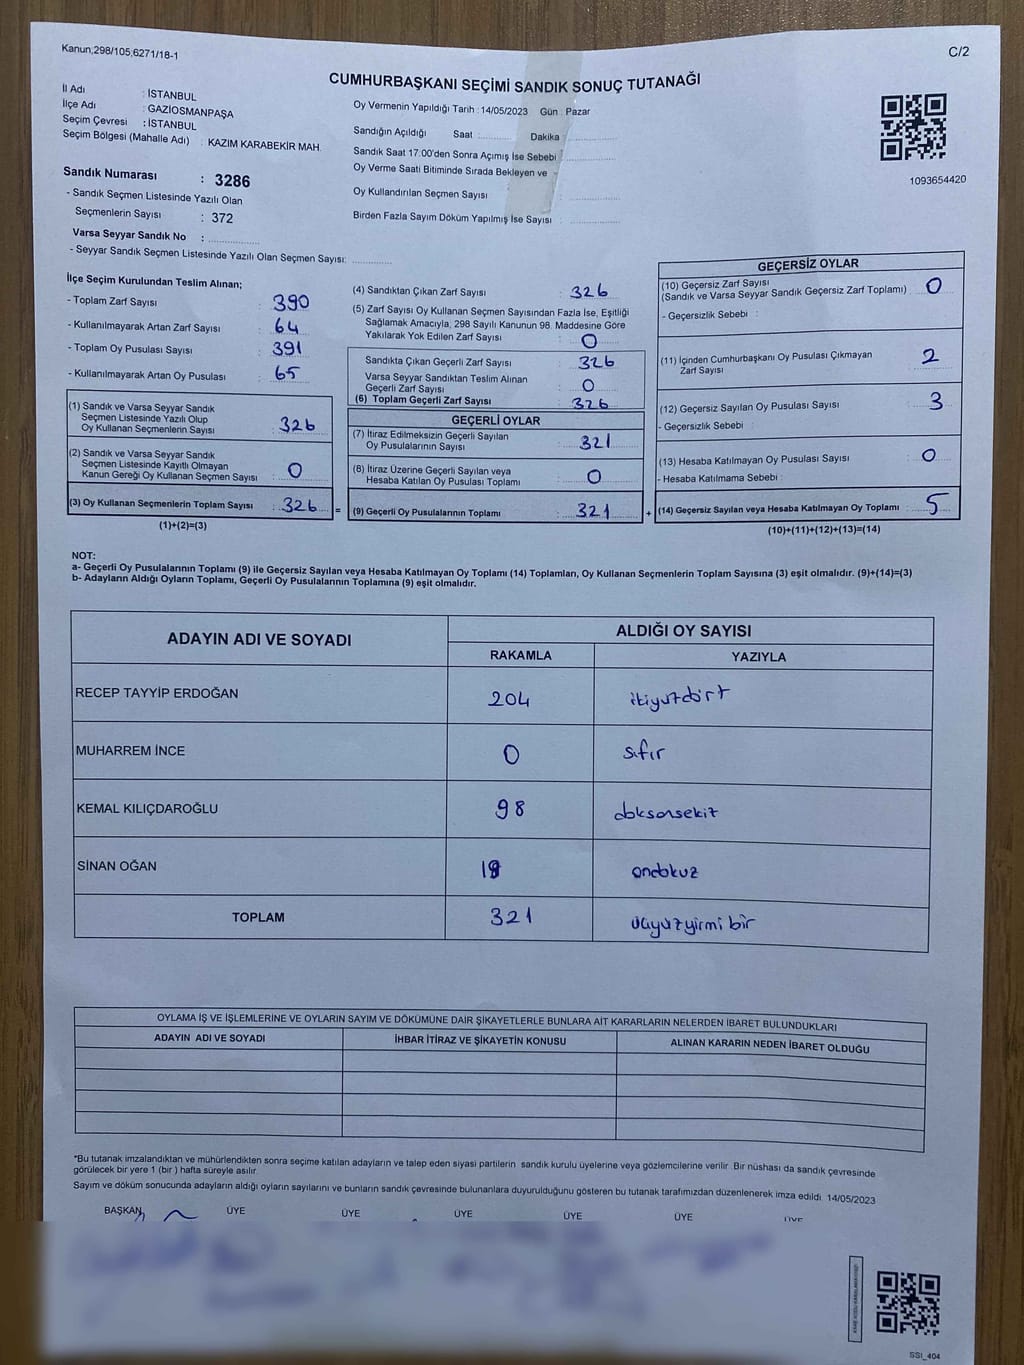 Kanun;298/105,6271/18-1
C/2
CUMHURBAŞKANI SEÇİMİ SANDIK SONUÇ TUTANAĞI
İl Adı : İSTANBUL
İlçe Adı : GAZİOSMANPAŞA
Seçim Çevresi : İSTANBUL
Seçim Bölgesi (Mahalle Adı) : KAZIM KARABEKİR MAH.
Sandık Numarası : 3286
- Sandık Seçmen Listesinde Yazılı Olan
Seçmenlerin Sayısı : 372
Varsa Seyyar Sandık No :
- Seyyar Sandık Seçmen Listesinde Yazılı Olan Seçmen Sayısı:
Oy Vermenin Yapıldığı Tarih : 14/05/2023 Gün : Pazar
Sandığın Açıldığı Saat Dakika
Sandık Saat 17:00'den Sonra Açımış İse Sebebi
Oy Verme Saati Bitiminde Sırada Bekleyen ve
Oy Kullandırılan Seçmen Sayısı :
Birden Fazla Sayım Döküm Yapılmış İse Sayısı :
1093654420
İlçe Seçim Kurulundan Teslim Alınan;
- Toplam Zarf Sayısı : 390
- Kullanılmayarak Artan Zarf Sayısı : 64
- Toplam Oy Pusulası Sayısı : 391
- Kullanılmayarak Artan Oy Pusulası : 65
(1) Sandık ve Varsa Seyyar Sandık
Seçmen Listesinde Yazılı Olup
Oy Kullanan Seçmenlerin Sayısı : 326
(2) Sandık ve Varsa Seyyar Sandık
Seçmen Listesinde Kayıtlı Olmayan
Kanun Gereği Oy Kullanan Seçmen Sayısı : 0
(3) Oy Kullanan Seçmenlerin Toplam Sayısı : 326 =
(1)+(2)=(3)
(4) Sandıktan Çıkan Zarf Sayısı : 326
(5) Zarf Sayısı Oy Kullanan Seçmen Sayısından Fazla İse, Eşitliği
Sağlamak Amacıyla, 298 Sayılı Kanunun 98. Maddesine Göre
Yakılarak Yok Edilen Zarf Sayısı : 0
Sandıkta Çıkan Geçerli Zarf Sayısı : 326
Varsa Seyyar Sandıktan Teslim Alınan
Geçerli Zarf Sayısı : 0
(6) Toplam Geçerli Zarf Sayısı : 326
GEÇERLİ OYLAR
(7) İtiraz Edilmeksizin Geçerli Sayılan
Oy Pusulalarının Sayısı : 321
(8) İtiraz Üzerine Geçerli Sayılan veya
Hesaba Katılan Oy Pusulası Toplamı : 0
(9) Geçerli Oy Pusulalarının Toplamı : 321 +
GEÇERSİZ OYLAR
(10) Geçersiz Zarf Sayısı
(Sandık ve Varsa Seyyar Sandık Geçersiz Zarf Toplamı) : 0
- Geçersizlik Sebebi :
(11) İçinden Cumhurbaşkanı Oy Pusulası Çıkmayan
Zarf Sayısı : 2
(12) Geçersiz Sayılan Oy Pusulası Sayısı : 3
- Geçersizlik Sebebi :
(13) Hesaba Katılmayan Oy Pusulası Sayısı : 0
- Hesaba Katılmama Sebebi :
(14) Geçersiz Sayılan veya Hesaba Katılmayan Oy Toplamı : 5
(10)+(11)+(12)+(13)=(14)
NOT:
a- Geçerli Oy Pusulalarının Toplamı (9) ile Geçersiz Sayılan veya Hesaba Katılmayan Oy Toplamı (14) Toplamları, Oy Kullanan Seçmenlerin Toplam Sayısına (3) eşit olmalıdır. (9)+(14)=(3)
b- Adayların Aldığı Oyların Toplamı, Geçerli Oy Pusulalarının Toplamına (9) eşit olmalıdır.
ADAYIN ADI VE SOYADI ALDIĞI OY SAYISI
RAKAMLA YAZIYLA
RECEP TAYYİP ERDOĞAN 204 ikiyüzdört
MUHARREM İNCE 0 sıfır
KEMAL KILIÇDAROĞLU 98 doksansekiz
SİNAN OĞAN 19 ondokuz
TOPLAM 321 üçyüzyirmi bir
OYLAMA İŞ VE İŞLEMLERİNE VE OYLARIN SAYIM VE DÖKÜMÜNE DAİR ŞİKAYETLERLE BUNLARA AİT KARARLARIN NELERDEN İBARET BULUNDUKLARI
ADAYIN ADI VE SOYADI İHBAR İTİRAZ VE ŞİKAYETİN KONUSU ALINAN KARARIN NEDEN İBARET OLDUĞU
*Bu tutanak imzalandıktan ve mühürlendikten sonra seçime katılan adayların ve talep eden siyasi partilerin sandık kurulu üyelerine veya gözlemcilerine verilir. Bir nüshası da sandık çevresinde
görülecek bir yere 1 (bir ) hafta süreyle asılır.
Sayım ve döküm sonucunda adayların aldığı oyların sayılarını ve bunların sandık çevresinde bulunanlara duyurulduğunu gösteren bu tutanak tarafımızdan düzenlenerek imza edildi. 14/05/2023
BAŞKAN ÜYE ÜYE ÜYE ÜYE ÜYE ÜYE
SSI_404